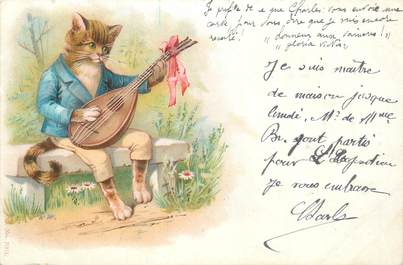 Je profite de ce que Charles vous envoie une
carte pour vous dire que je suis encore
recalé! "honneur aux vaincus!"
"gloria victis"
Je suis maître
de maison jusque
lundi, Mr de Mme
Br. sont partis
pour
je vous embrasse
Charles